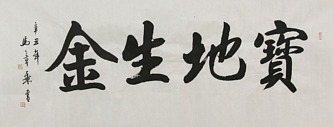 寶地生金
辛丑年